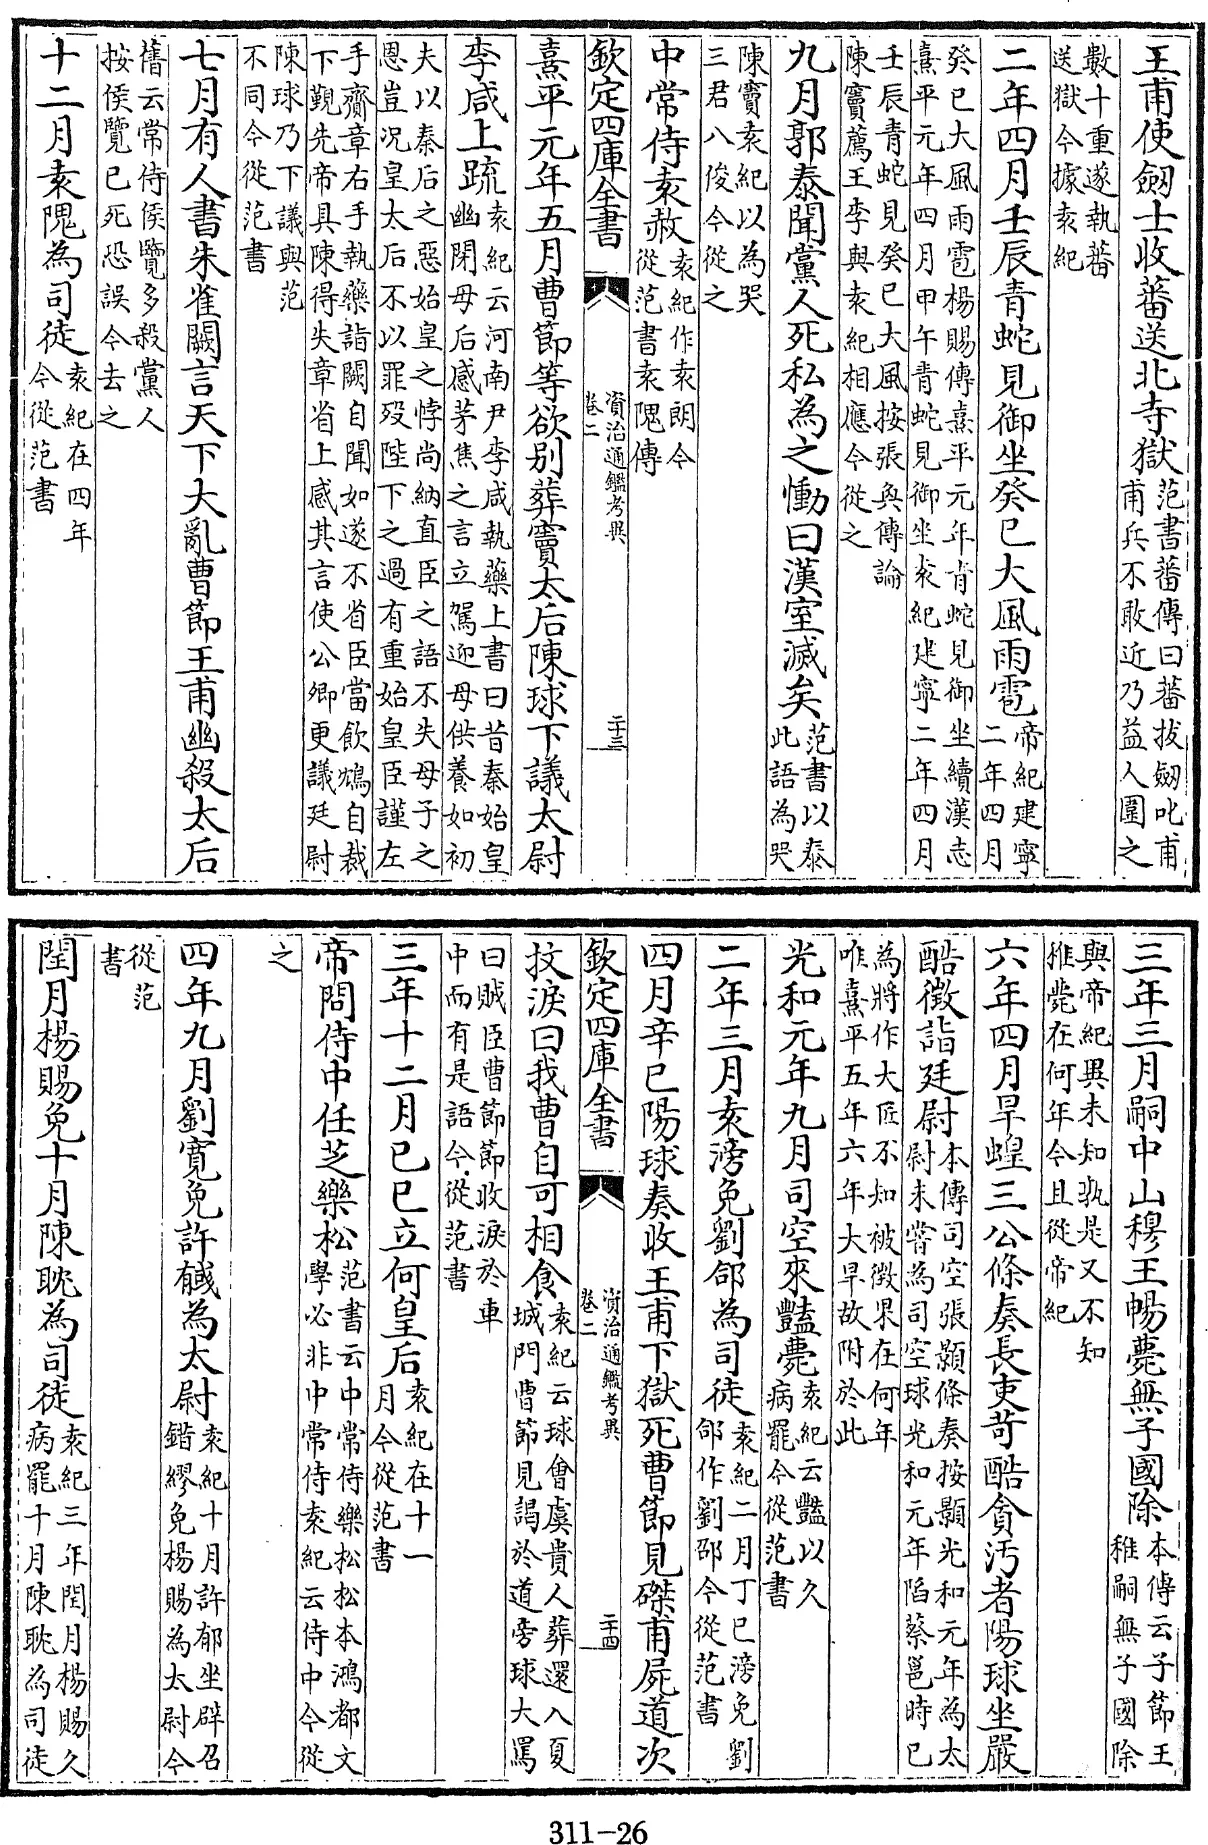 王甫使劒士收蕃送北寺獄范書蕃傳曰蕃拔劒叱甫甫兵不敢近乃益人圍之
數十重遂執蕃送獄今據袁紀
二年四月壬辰青蛇見御坐癸巳大風雨雹帝紀建寧二年四月
癸巳大風雨雹楊賜傳熹平元年青蛇見御坐續漢志熹平元年四月甲午青蛇見御坐袁紀建寧二年四月
壬辰青蛇見癸巳大風按張奐傳論陳竇薦王李與袁紀相應今從之
九月郭泰聞黨人死私為之慟曰漢室滅矣范書以泰此語為哭
陳竇袁紀以為哭三君八俊今從之
中常侍袁赦袁紀作袁朗今從范書袁隗傳
欽定四庫全書
資治通鑑考異
卷二
二十三
熹平元年五月曹節等欲别葬竇太后陳球下議太尉
李咸上䟽袁紀云河南尹李咸執藥上書曰昔秦始皇幽閉母后感茅焦之言立駕迎母供養如初
夫以秦后之惡始皇之悖尚納直臣之語不失母子之恩豈况皇太后不以罪歿陛下之過有重始皇臣謹左
手齎章右手執藥詣闕自聞如遂不省臣當飲鴆自裁下覲先帝具陳得失章省上感其言使公卿更議廷尉
陳球乃下議與范不同今從范書
七月有人書朱雀闕言天下大亂曹節王甫幽殺太后
舊云常侍侯覽多殺黨人按侯覽已死恐誤今去之
十二月袁隗為司徒袁紀在四年今從范書
三年三月嗣中山穆王暢薨無子國除本傳云子節王稚嗣無子國除
與帝紀異未知孰是又不知稚薨在何年今且從帝紀
六年四月旱蝗三公條奏長吏苛酷貪汚者陽球坐嚴
酷徵詣廷尉本傳司空張顥條奏按顥光和元年為太尉未嘗為司空球光和元年陷蔡邕時已
為將作大匠不知被徵果在何年唯熹平五年六年大旱故附於此
光和元年九月司空來豔薨袁紀云豔以久病罷今從范書
二年三月袁滂免劉郃為司徒袁紀二月丁巳滂免劉郃作劉邵今從范書
四月辛巳陽球奏收王甫下獄死曹節見磔甫屍道次
欽定四庫全書
資治通鑑考異
卷二
二十四
抆淚曰我曹自可相食袁紀云球會虞貴人葬還入夏城門曹節見謁於道旁球大罵
曰賊臣曹節節收淚於車中而有是語今從范書
三年十二月己巳立何皇后袁紀在十一月今從范書
帝問侍中任芝樂松范書云中常侍樂松松本鴻都文學必非中常侍袁紀云侍中今從
之
四年九月劉寛免許䤋為太尉袁紀十月許郁坐辟召錯繆免楊賜為太尉今
從范書
閏月楊賜免十月陳耽為司徒袁紀三年閏月楊賜久病罷十月陳耽為司徒
311-26